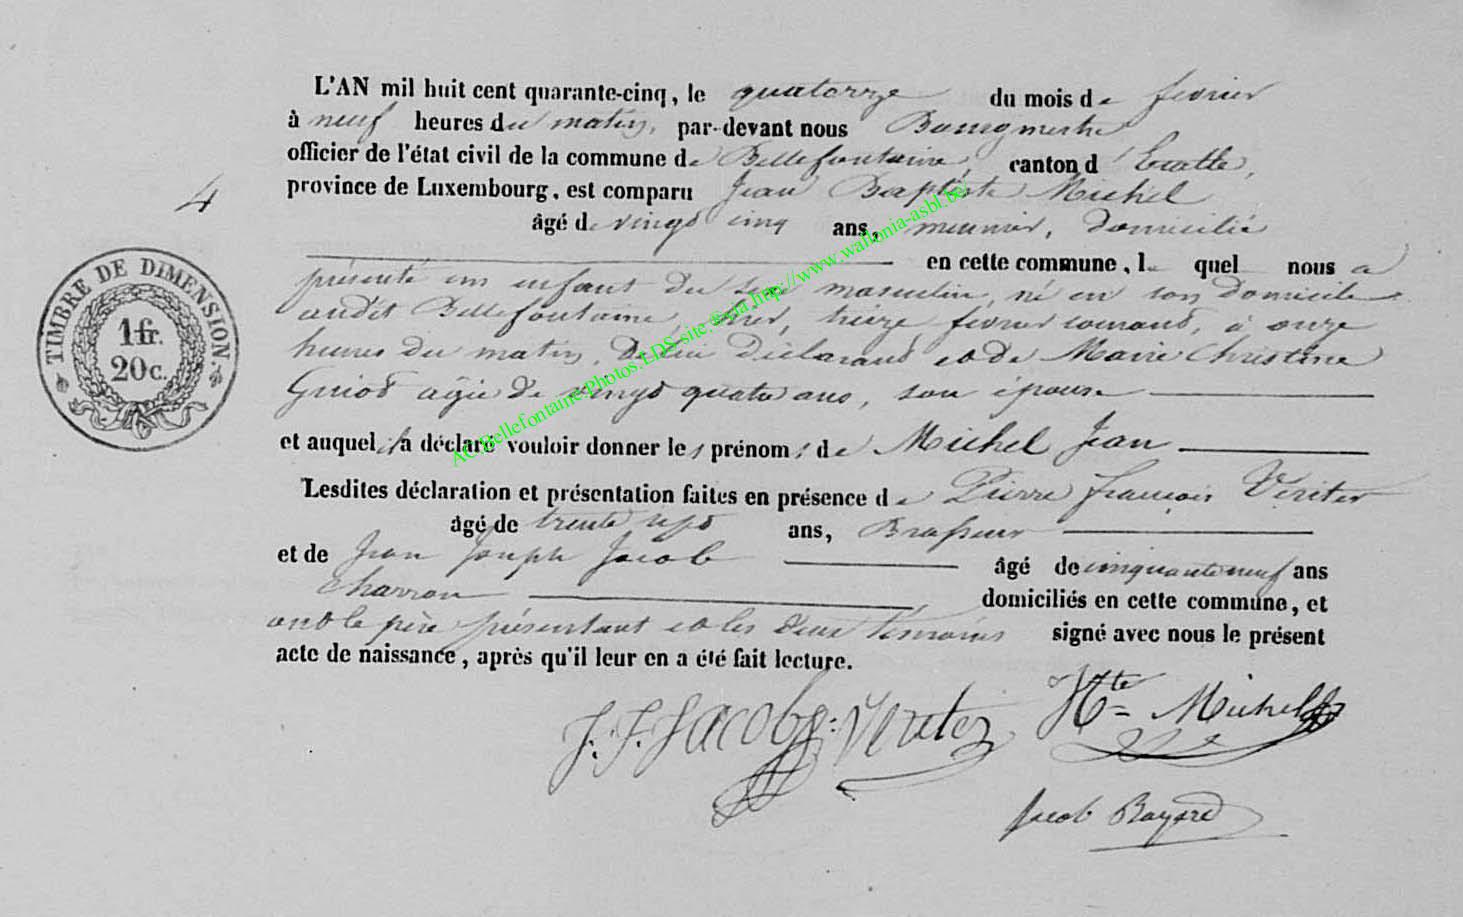 L'AN mil huit cent quarante-cinq, le quatorze du mois de février
à neuf heures du matin, par-devant nous Bourgmestre
officier de l'état civil de la commune de Bellefontaine, canton d'Etalle,
province de Luxembourg, est comparu Jean Baptiste Michel
4
âgé de vingt cinq ans, meunier, domicilié
en cette commune, lequel nous a
présenté un enfant du sexe masculin, né en son domicile
audit Bellefontaine, hier, treize février courant, à onze
heures du matin, de lui déclarant et de Marie Christine
Guiot agée de vingt quatre ans, son épouse
et auquel il a déclaré vouloir donner les prénoms de Michel Jean
Lesdites déclaration et présentation faites en présence de Pierre françois Veriter
âgé de trente sept ans, Brasseur
et de Jean Joseph Jacob âgé de cinquante neuf ans
Charron domiciliés en cette commune, et
ont le père présentant et les deux témoins signé avec nous le présent
acte de naissance, après qu'il leur en a été fait lecture.
TIMBRE DE DIMENSION.
1 fr.
20 c.
J. J. Jacob Veriter Michel
Jacob Bayard
AC.Bellefontaine.Photos.LDS-site.@sia.http://www.wallonia-asbl.be/